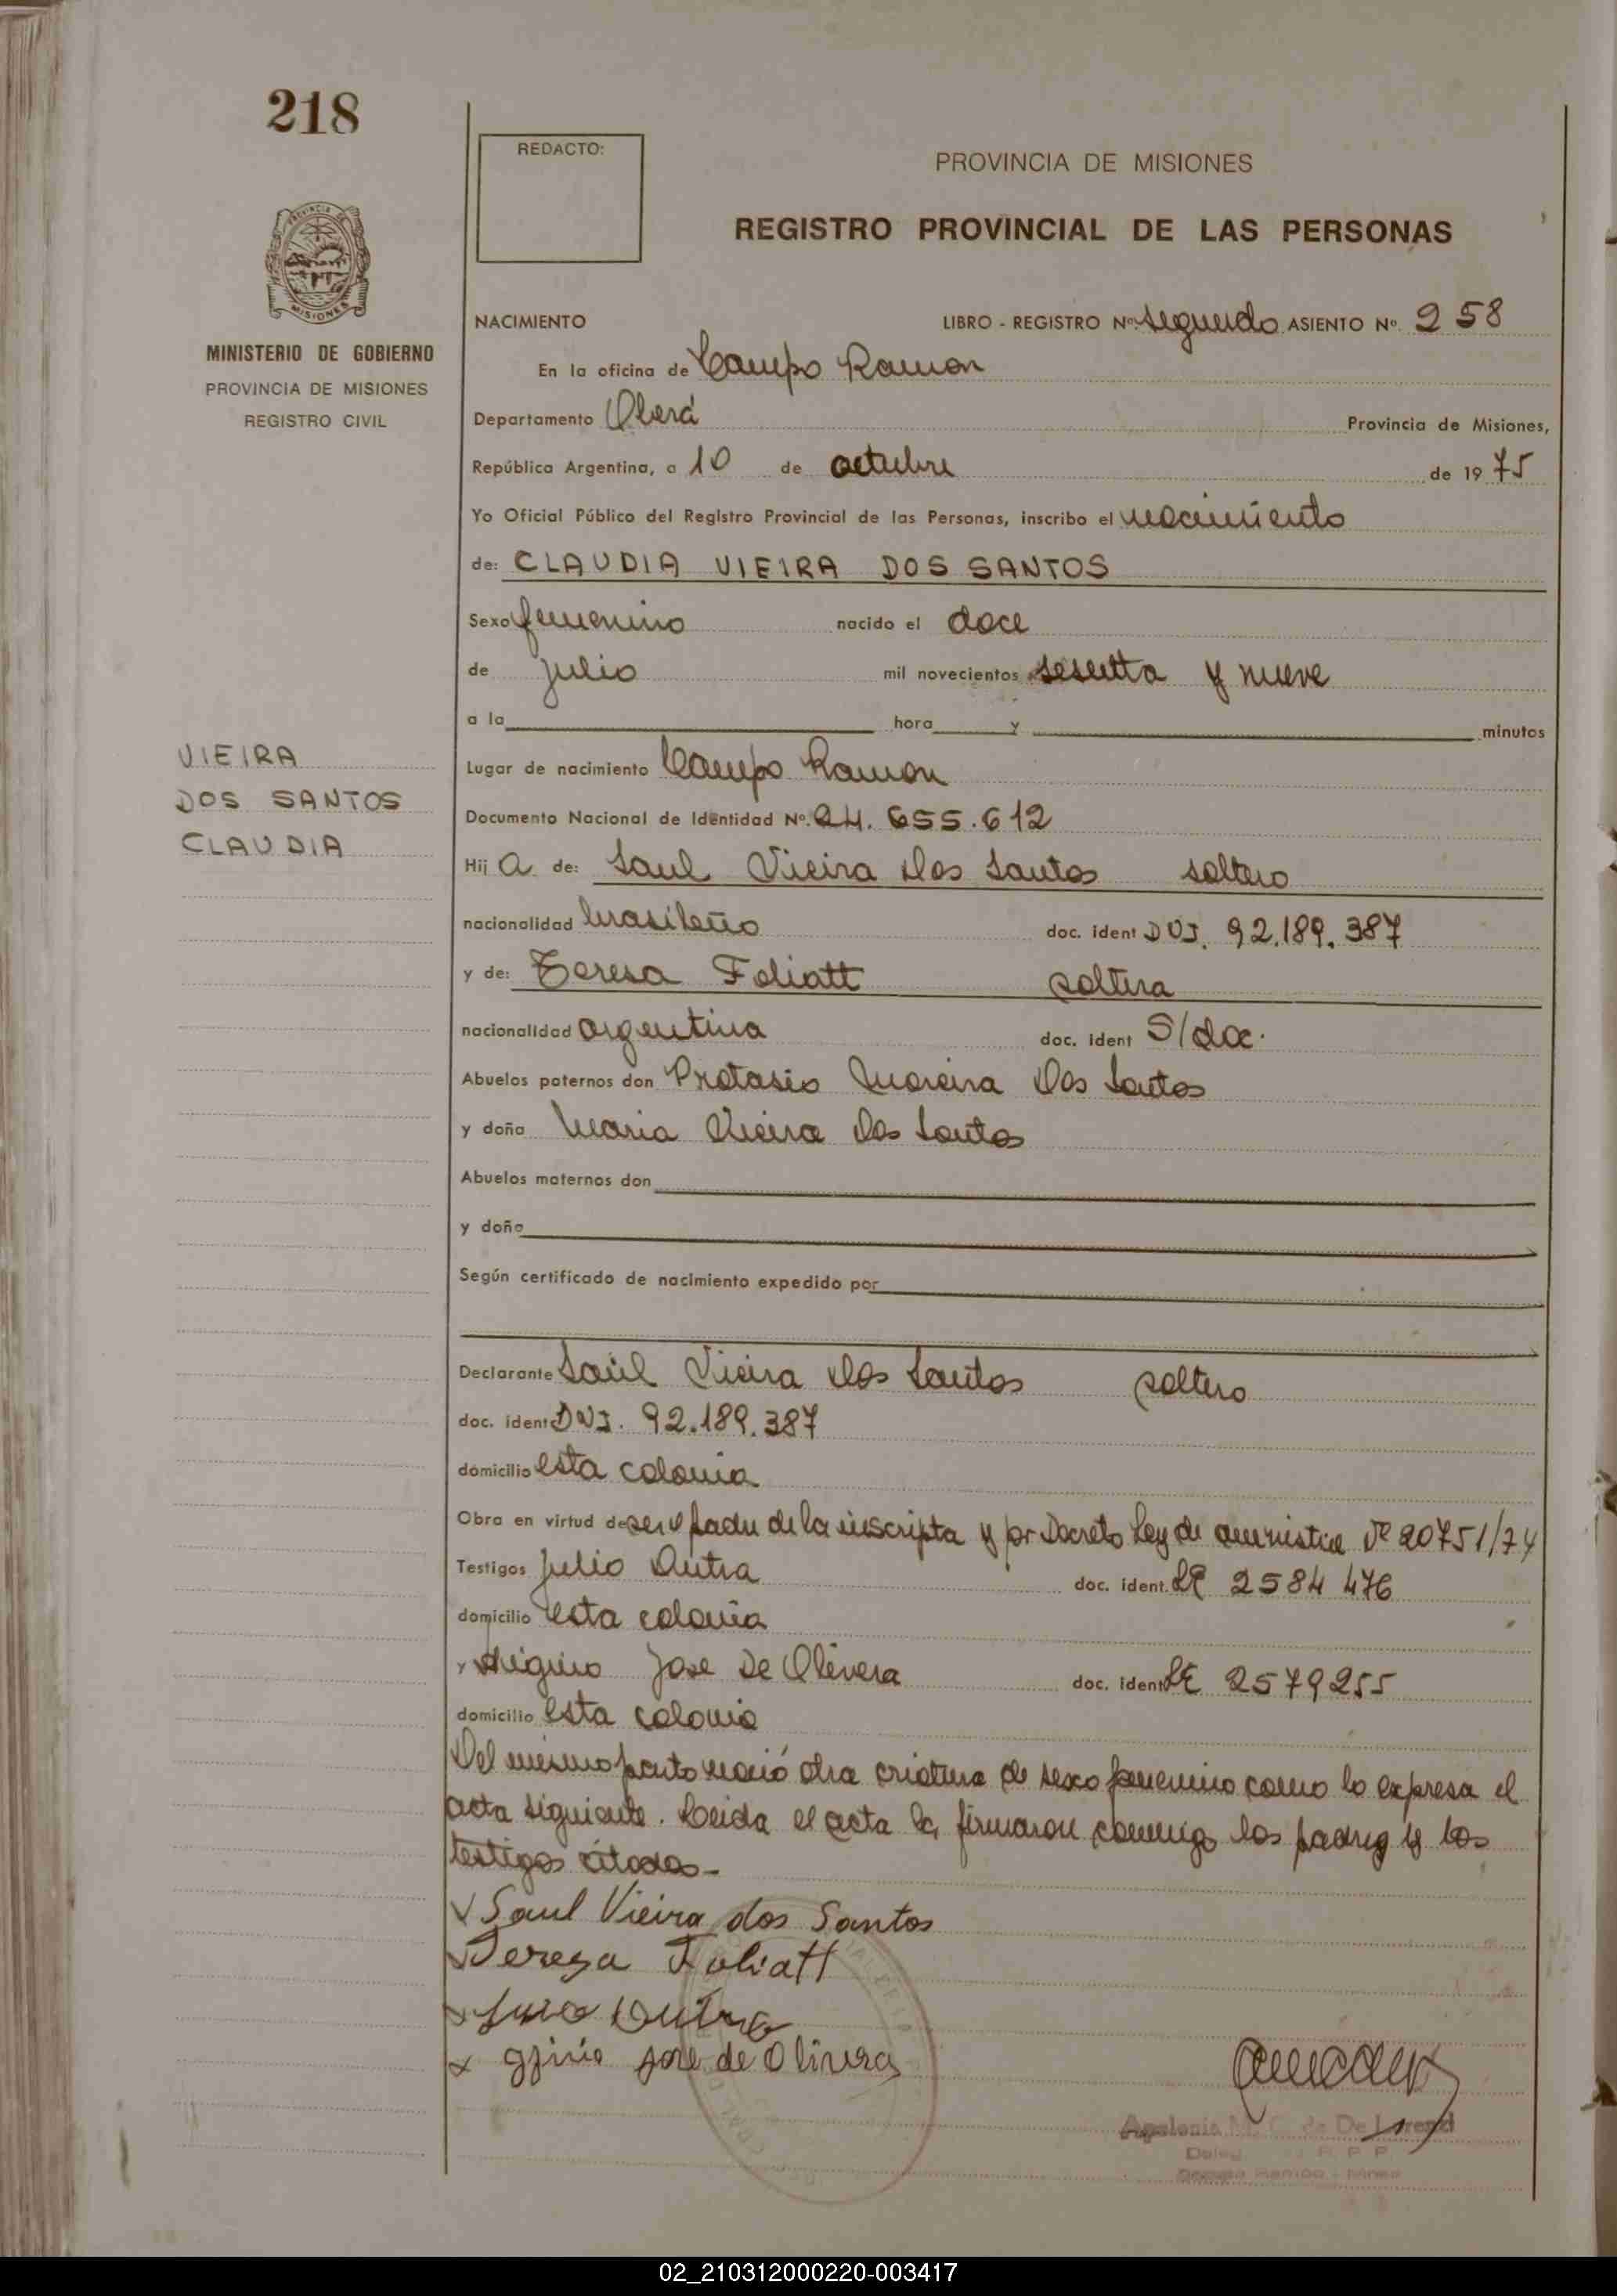 218
REDACTO:
PROVINCIA DE MISIONES
REGISTRO PROVINCIAL DE LAS PERSONAS
PROVINCIA DE
MISIONES
MINISTERIO DE GOBIERNO
PROVINCIA DE MISIONES
REGISTRO CIVIL
NACIMIENTO LIBRO - REGISTRO Nº. segundo ASIENTO Nº. 258
En la oficina de Campo Ramon
Departamento Oberá Provincia de Misiones,
República Argentina, a 10 de octubre de 19 75
Yo Oficial Público del Registro Provincial de las Personas, inscribo el nacimiento
de: CLAUDIA VIEIRA DOS SANTOS
Sexo femenino nacido el doce
de julio mil novecientos sesenta y nueve
a la hora y minutos
VIEIRA
DOS SANTOS
CLAUDIA
Lugar de nacimiento Campo Ramon
Documento Nacional de Identidad Nº. 24.655.612
Hij a de: Saul Vieira Dos Santos soltero
nacionalidad brasileño doc. ident DNI. 92.189.387
y de: Teresa Foliatt soltera
nacionalidad argentina doc. ident S/doc.
Abuelos paternos don Protasio Moreira Dos Santos
y doña Maria Vieira Dos Santos
Abuelos maternos don
y doña
Según certificado de nacimiento expedido por
Declarante Saúl Vieira Dos Santos soltero
doc. ident DNI. 92.189.387
domicilio esta colonia
Obra en virtud de ser el padre de la inscripta y por Decreto Ley de amnistia Nº 20751/74
Testigos Julio Dutra doc. ident. LE 2584476
domicilio esta colonia
y Higino Jose De Olivera doc. ident LE 2579255
domicilio esta colonia
Del mismo parto nació otra criatura de sexo femenino como lo expresa el
acta siguiente. Leida el acta la firmaron conmigo los padres y los
testigos citados-
Saul Vieira dos Santos
Tereza Foliatt
Dutra
jose de Olivera
Apolonia De
R. P. P.
Campo Ramón - Mnes
02_210312000220-003417